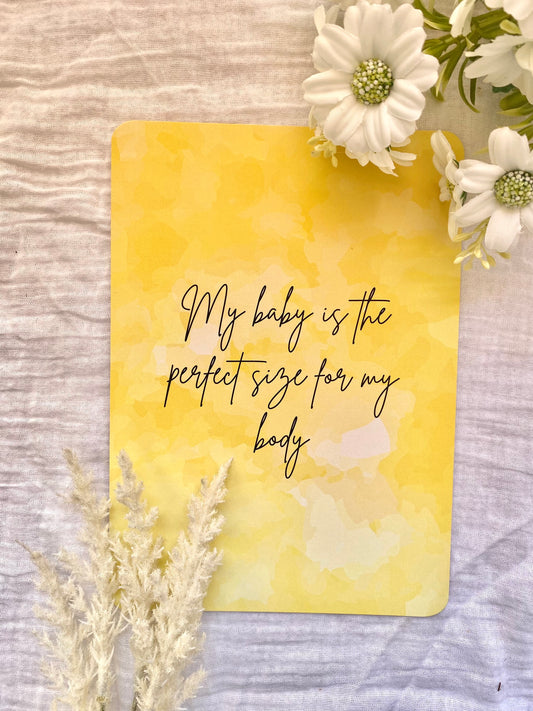 My baby is the
perfect size for my
body